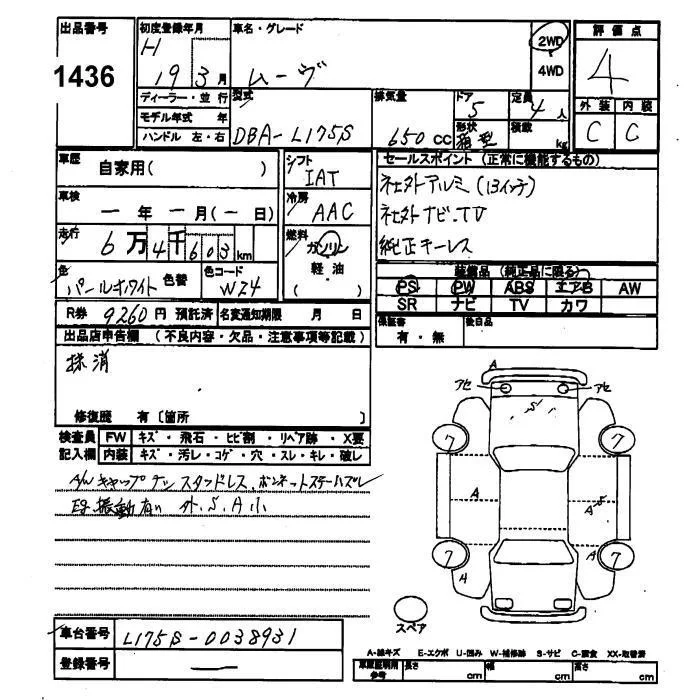 出品番号 初度登録年月 車名・グレード 評価点
1436 H 19 3月 ムーヴ 2WD 4WD 4
ディーラー・並行 型式 排気量 ドア 5 定員 4人 外装 内装
モデル年式 年 形状 箱型 積載 kg C C
ハンドル 左・右 DBA-L175S 650CC
車歴 自家用( ) シフト IAT セールスポイント (正常に機能するもの)
車検 ー年ー月(ー日) 冷房 AAC 社外アルミ(13インチ)
社外ナビ.TV
走行 6万4千603km 燃料 ガソリン 軽油 ( ) 純正キーレス
色 パールホワイト 色替 色コード W24 装備品 (純正品に限る)
PS PW ABS エアB AW
SR ナビ TV カワ
R券 9260円 預託済 名変通知期限 月 日 保証書 有・無 後日品
出品店申告欄 (不良内容・欠品・注意事項等記載)
抹消
修復歴 有〔箇所 〕
検査員記入欄 FW キズ・飛石・ヒビ割・リペア跡・X要
内装 キズ・汚レ・コゲ・穴・スレ・キレ・破レ
A/W キャップナシ スタッドレス、ボンネットステーハズレ
EG振動有り 外.S.A小
A
アセ アセ
S
7 7
A A S
7 A 7
4
スペア
車台番号 L175S-0038931
登録番号 ー
A-線キズ E-エクボ U-凹み W-補修跡 S-サビ C-腐食 XX-取替済
車庫証明用参考 長さ cm 幅 cm 高さ cm